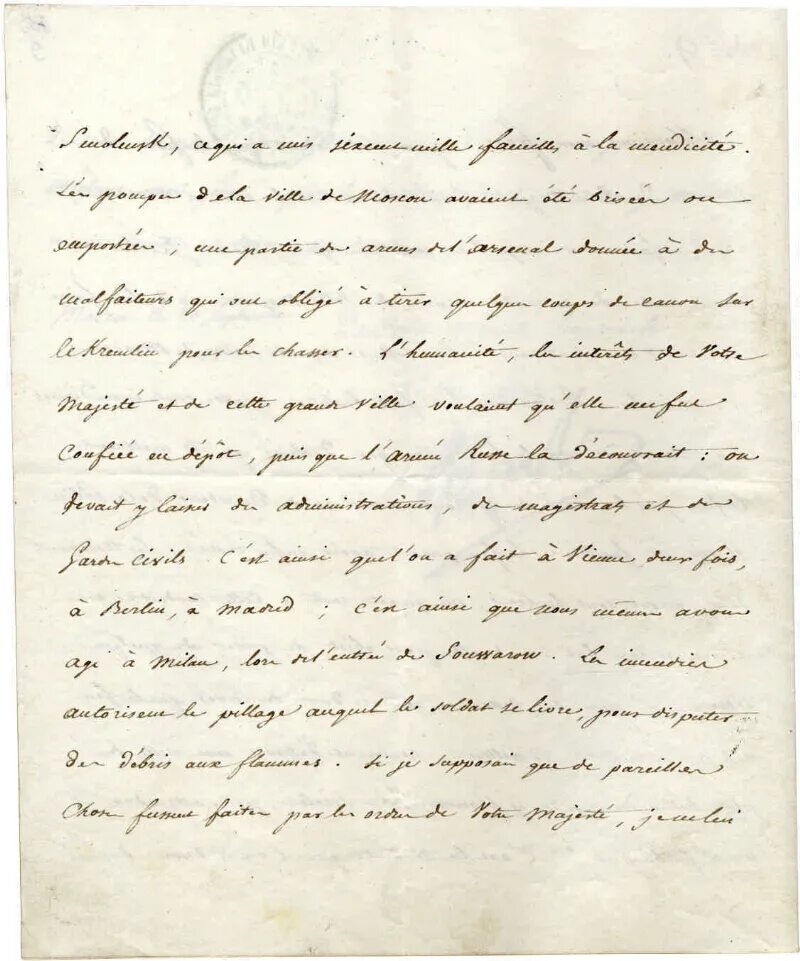 Smolensk, ce qui a mis six cent mille familles à la mendicité.
Les pompes de la ville de Moscou avaient été brisées ou
emportées, une partie des armes de l'arsenal donnée à des
malfaiteurs qui ont obligé à tirer quelques coups de canon sur
le Kremlin pour les chasser. L'humanité, les intérêts de Votre
Majesté et de cette grande ville voulaient qu'elle me fut
confiée en dépôt, puisque l'armée Russe la découvrait : on
devait y laisser des administrations, des magistrats et des
Gardes Civils. C'est ainsi que l'on a fait à Vienne deux fois,
à Berlin, à Madrid ; c'est ainsi que nous mêmes avons
agi à Milan, lors de l'entrée de Souwarow. Les incendies
autorisent le pillage auquel le soldat se livre, pour disputer
des débris aux flammes. Si je supposais que de pareilles
choses fussent faites par les ordres de Votre Majesté, je ne lui